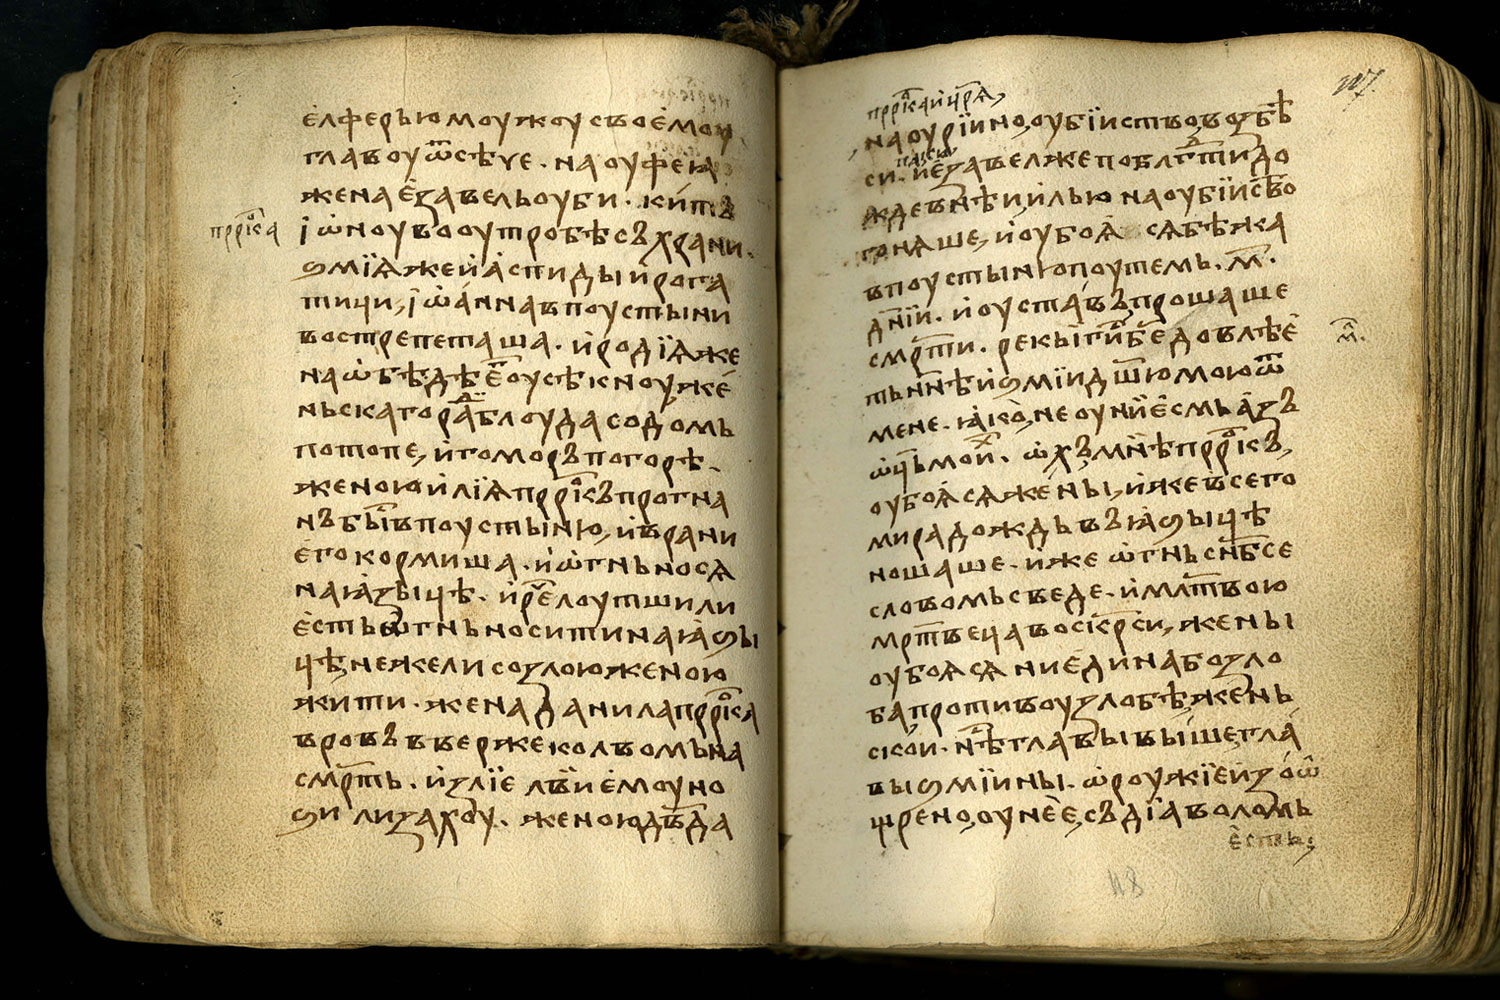 є҆лферьюмоужоусвоє҆моу
главоуѿсѣче. наоуфеꙗ
женає҆ꙁавельоуби. ки́тъ
прⷪ҇рка
і҆ѡ҆ноувооутробѣсъхрани.
ѕмїѧжеи҆а҆спидыи҆рога
тици, і҆ѡ҆а́ннавпоустыни
вострепеташа. и҆родїѧже
наѡ҆бѣдѣє҆гоусѣкноуже́
ньскагораⷣблоудасодомь
потопе, и҆гоморъпогорѣ.
женоюи҆лїѧпрⷪ҇ркъпрогна
нъбыⷭ҇впоустыню, и҆врани
є҆гокормиша. и҆ѡ҆гньносѧ
наꙗ҆ꙁыцѣ. и҆рⷱ҇елоутшили
є҆стьѡ҆гньноситинаꙗ҆ѕы
цѣнежелисоꙁлоюженою
жити. женаданилапрⷪ҇рка
вровъввержеколвомьна
смр҃ть. и҆ꙁлїе львиє҆моуно
ѕилиꙁахоу. женоюдв҃да
прⷪ҇ркаи҆цр҃ѧ,
наоурїино, оубїиствовоꙁбѣ
паки
си. и҆є҆ꙁавелжепоблⷣгтидо
ждевнѣи, и҆лью наоубїиство
гонѧше, и҆оубоѧ сѧбѣжа
впоустынюпоутемь. м҃.
дн҃їи. и҆оуставъпрошаше
м҃.
смр҃ти. рекыгⷭ҇ибе҃довлѣє҆
тьнн҃ѣи҆ѕмїидш҃юмоюѿ
мене. ꙗ҆ко, неоунїиє҆смьа҆ꙁъ
ѡ҆ц҃ьмоиⷯ. ѡ҆хъмнѣпрⷪ҇ркъ,
оубоѧсѧжены, и҆жевсего
мирадождьвъꙗ҆ѕыцѣ
ношаше. и҆же ѡ҆гньснб҃се
словомьсведе. и҆млт҃вою
мр҃твецавоскр҃си, жены
оубоѧсѧ ниє҆динабоꙁло
ба, противоуꙁлобѣжень
скои. нⷭ҇ѣглавывы́шегла́
выѕмїины. ѡ҆роужїеи҆ꙁоѡ҆
щрено, оунеє҆, съдїаволомь
є҆сть,
48